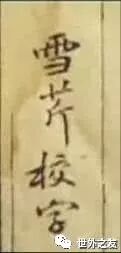 雪芹校字
世外之友